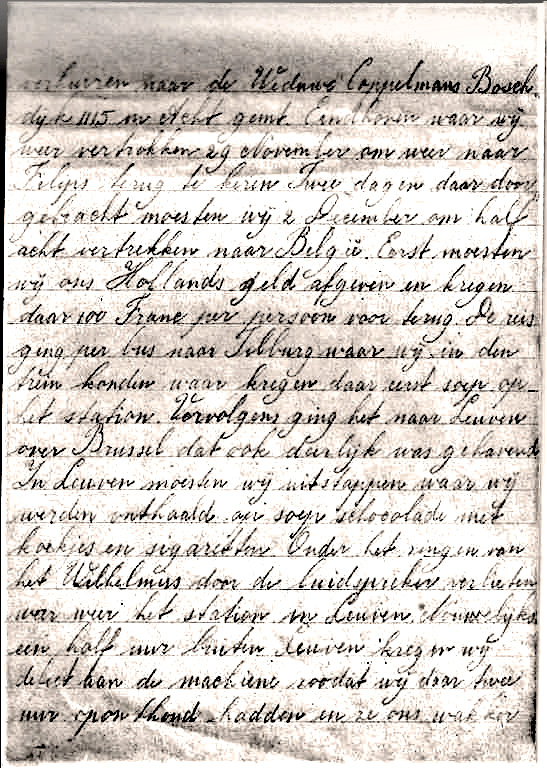 verhuizen naar de Weduwe Coppelmans Bosch
dijk 1115 in Acht gemt Eindhoven waar wij
weer vertrokken 29 November om weer naar
Filips terug te keren Twee dagen daar door
gebracht moesten wij 2 December om half
acht vertrekken naar België. Eerst moesten
wij ons Hollands geld afgeven en kregen
daar 100 Franc per persoon voor terug. De reis
ging per bus naar Tilburg waar wij in den
trein konden waar kregen daar eerst soep op
het station. Vervolgens ging het naar Leuven
over Brussel dat ook deerlijk was gehavend
In Leuven moesten wij uitstappen waar wij
werden onthaald op soep schocolade met
koekjes en sigaretten Onder het zingen van
het Wilhelmus door de luidspreker verlieten
wer het station in Leuven Nouwelijks
een half uur buiten Leuven kregen wij
defect aan de machiene zoodat wij daar twee
uur oponthoud hadden en ze ons